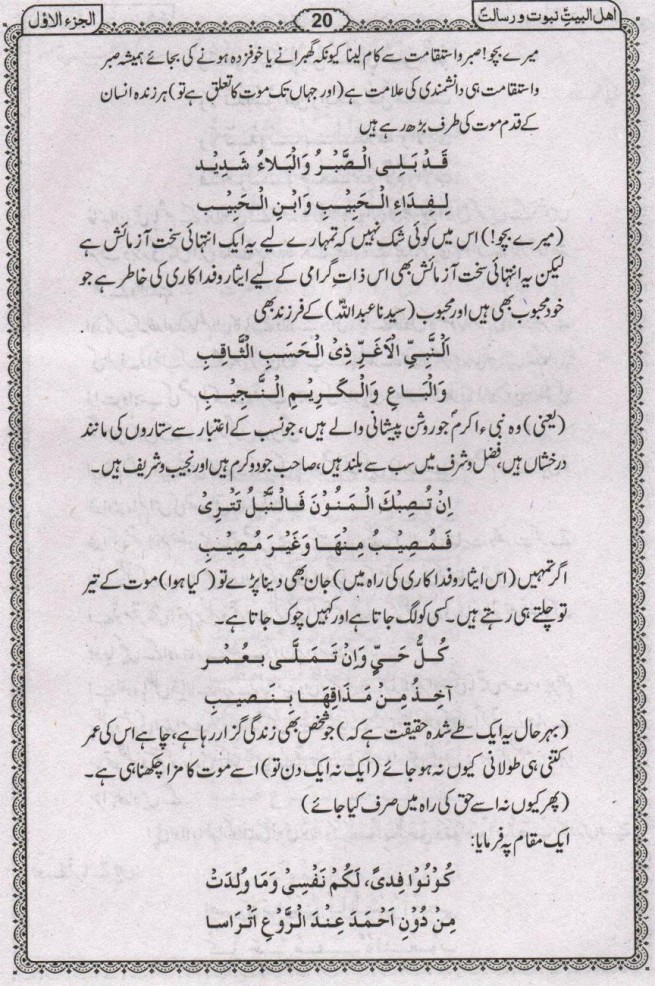 اھل البیتؑ نبوت و رسالت
20
الجزء الاوّل
میرے بچو! صبر و استقامت سے کام لینا کیونکہ گھبرانے یا خوفزدہ ہونے کی بجائے ہمیشہ صبر
و استقامت ہی دانشمندی کی علامت ہے (اور جہاں تک موت کا تعلق ہے تو) ہر زندہ انسان
کے قدم موت کی طرف بڑھ رہے ہیں
قَدْ بَلِی الصَّبْرُ وَالْبَلَاءُ شَدِیْد
لِفِدَاءِ الْحَبِیْبِ وَابْنِ الْحَبِیْبِ
(میرے بچو!) اس میں کوئی شک نہیں کہ تمہارے لیے یہ ایک انتہائی سخت آزمائش ہے
لیکن یہ انتہائی سخت آزمائش بھی اس ذاتِ گرامی کے لیے ایثار و فداکاری کی خاطر ہے جو
خود محبوب بھی ہیں اور محبوب (سیدنا عبداللہؑ) کے فرزند بھی
اَلنَّبِیِّ الْاَغَرِّ ذِیْ الْحَسَبِ الثَّاقِبِ
وَالْبَاعِ وَالْکَرِیْمِ النَّجِیْبِ
(یعنی) وہ نبیء اکرمؐ جو روشن پیشانی والے ہیں، جو نسب کے اعتبار سے ستاروں کی مانند
درخشاں ہیں، فضل و شرف میں سب سے بلند ہیں، صاحب جود و کرم ہیں اور نجیب و شریف ہیں۔
اِنْ تُصِبْكَ الْمَنُوْنَ فَالنَّبْلُ تَتْرِیْ
فَمُصِیْبٌ مِنْهَا وَغَیْرَ مُصِیْبِ
اگر تمہیں (اس ایثار و فداکاری کی راہ میں) جان بھی دینا پڑے تو (کیا ہوا) موت کے تیر
تو چلتے ہی رہتے ہیں۔ کسی کو لگ جاتا ہے اور کہیں چوک جاتا ہے۔
کُلُّ حَیٍّ وَاِنْ تَمَلّٰی بِعُمْر
اٰخِذٌ مِنْ مَذَاقِهَا بِنَصِیْبِ
(بہرحال یہ ایک طے شدہ حقیقت ہے کہ) جو شخص بھی زندگی گزار رہا ہے، چاہے اس کی عمر
کتنی ہی طولانی کیوں نہ ہو جائے (ایک نہ ایک دن تو) اسے موت کا مزا چکھنا ہی ہے۔
(پھر کیوں نہ اسے حق کی راہ میں صرف کیا جائے)
ایک مقام پہ فرمایا:
کُوْنُوْا فِدیً، لَکُمْ نَفْسِیْ وَمَا وُلِدَتْ
مِنْ دُوْنِ اَحْمَدَ عِنْدَ الرَّوْعِ اَتْرَاسا